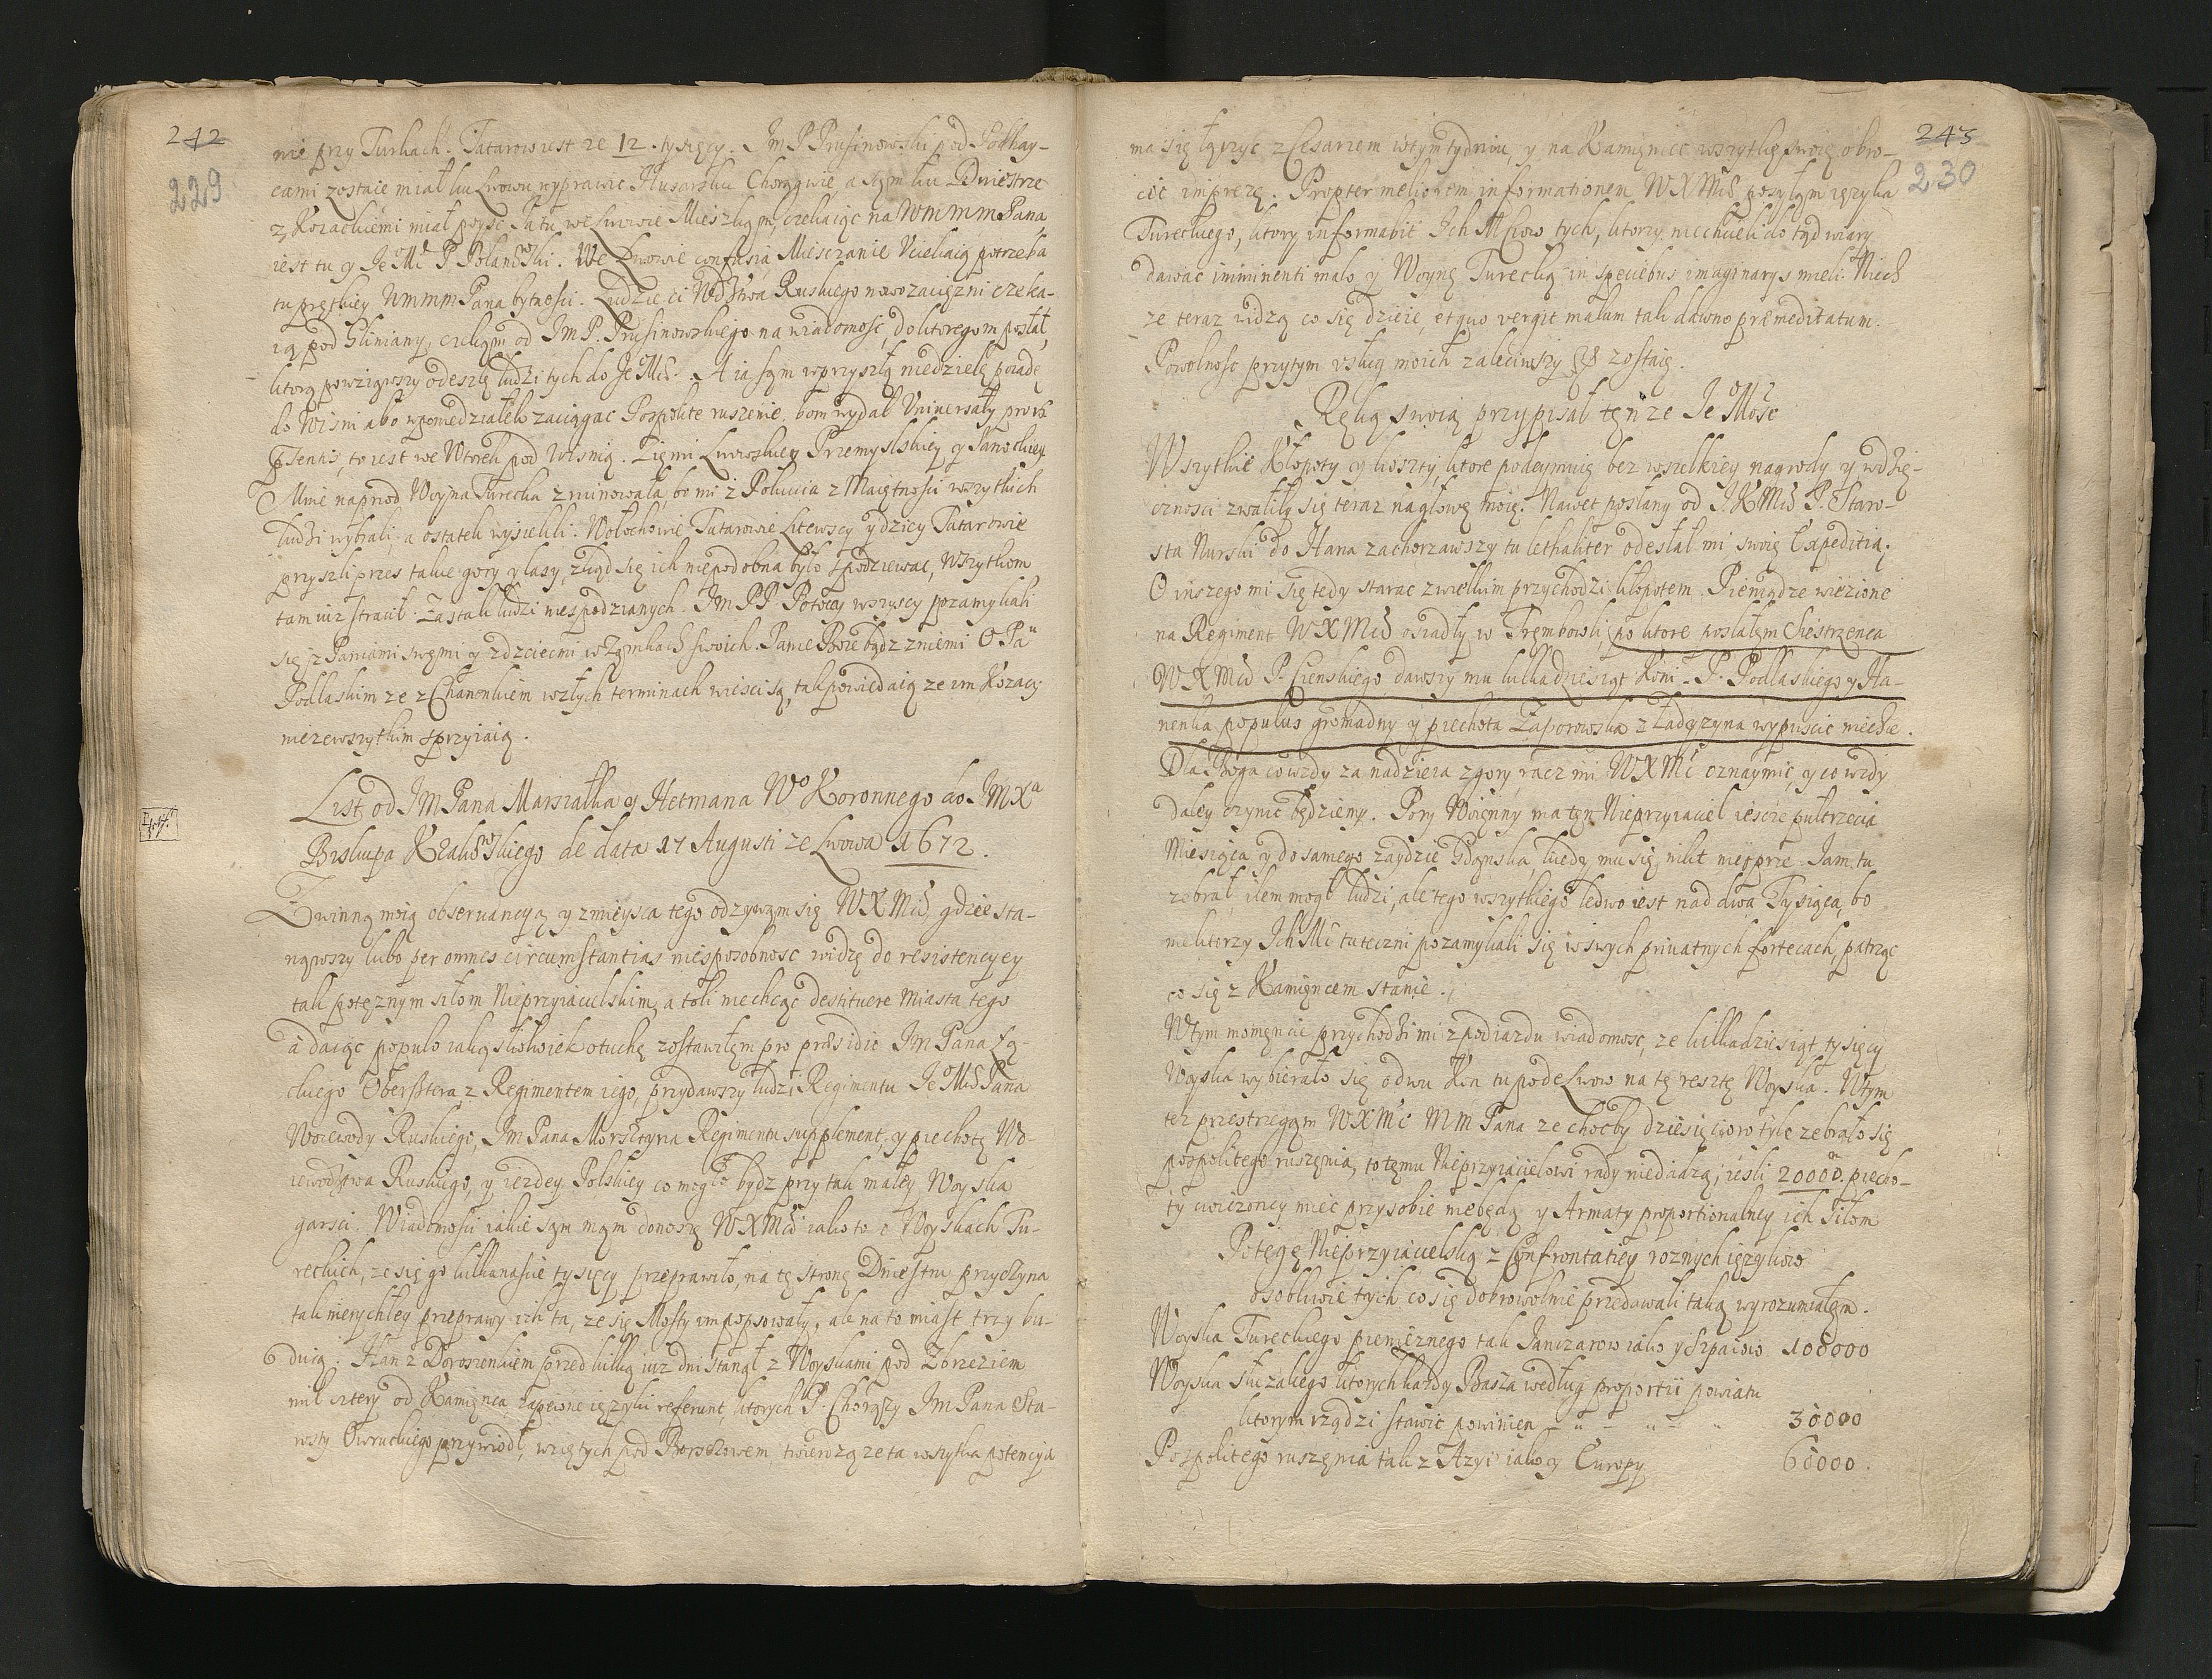 242
229
nie przy Turkach. Tatarow iest ze 12. tysięcy. Im P Prusinowski pod Podhay-
cami zostaie miał ku Lwowu wyprawic Husarskie Chorągwie a sąm ku Dniestrze
z Kozackiemi miał poysc. Ia tu we Lwowie Mieszkąm, czekaiąc na Wmmm Pana
iest tu y Je Mć P Polanowski. We Lwowie confusia Miesczanie Vciekaią potrzeba
tu prętkiey Wmmm Pana bytnosci. Ludzie ci Wdztwa Ruskiego nowozaciężni czeka-
ią pod Gliniany, czekąm od Im P. Prusinowskiego na wiadomosc, do ktoregom posłał,
ktorą powziąwszy odeszlę ludzi tych do Je Mći. A ia sąm w przyszłą niedzielę poiadę
do Wisni abo w poniedziałek zaciągac Pospolite ruszenie, bom wydał Vniwersały pro 16
psentis, to iest we Wtorek pod Wisnią. Ziemi Lwowskiey Przemyslskiey y Sanockiey
Mnie naprzod Woyna Turecka zruinowała, bo mi z Pokucia z Maiętnosci wszytkich
ludzi wybrali, a ostatek wysiekli. Wołochowie Tatarowie Litewscy y dzicy Tatarowie
przyszli przes takie gory y lasy, zkąd się ich niepodobna było spodziewac, Wszytkom
tam iuz stracił. Zastali ludzi niespodzianych. Im PP. Potoccy wszyscy pozamykali
się z Paniami swemi y z dziecmi w Zamkach swoich. Panie Boze bądz z niemi O Pau
Podlaskim ze z Chanenkiem w złych terminach wiesci są, tak powiedaią ze im Kozacy
niezewszytkim sprzyiaią.
List od IM Pana Marszałka y Hetmana Wo Koronnego do IMXa
Biskupa Krakowskiego de data 17 Augusti ze Lwowa 1672.
Z winną moią obseruancyą y z mieysca tego odzywąm się WXMći, gdzie sta-
nąwszy lubo per omnes circumstantias niesposobnosc widzę do resistencyey
tak potęznym siłom Nieprzyiacielskim, a toli niechcąc destituere miasta tego
a daiąc populo iakąszkolwiek otuchę zostawiłęm pro præsidio Im Pana Łą-
ckiego Obersztera z Regimentem iego, przydawszy ludzi Regimentu Je Mći Pana
Woiewody Ruskiego, Im Pana Morsztyna Regimentu supplement, y piechotę Wo-
iewodztwa Ruskiego, y iezdey Polskiey co mogło bydz przy tak małey Woyska
garsci. Wiadomosci iakie sąm mąm donoszę WXMći iako to o Woyskach Tu-
reckich, ze się go kilkanascie tysięcy przeprawiło, na tę stronę Dniestru przyczyna
tak nierychłey przeprawy ich ta, ze się Mosty im popsowały, ale na to miast trzy bu-
duią. Han z Doroszenkiem przed kilką iuz dni stanął z Woyskami pod Zbrzeziem
mil cztery od Kamięnca, zapewne ięzyki referunt, ktorych P. Chorązy Im Pana Sta-
rosty Owruckiego przywiodł, wziętych pod Borszowem, twierdzą ze ta wszytka potencyja
243
230
ma się łączyc z Cesarzem w tym tydniu, y na Kamięniec wszytkę swoię obro-
cic imprezę. Propter meliorem informationem WXMći posyłąm ięzyka
Tureckiego, ktory informabit Ich Msciow tych, ktorzy niechcieli do tąd wiary
dawac imminenti malo y Woynę Turecką in speciebus imaginarys mieli. Niech
ze teraz widzą co się dzieie, et quo vergit malum tak dawno præmeditatum.
Powolnosc przytym vsług moich zaleciwszy zostaię.
Ręką swoią przypisał tęnze Je Mosc
Wszytkie Kłopoty y koszty, ktore podeymuię bez wszelkiey nagrody y wdzię-
cznosci zwaliły się teraz na głowę moię. Nawet posłany od I.K.Mći P. Staro-
sta Nurski do Hana zachorzawszy tu lethaliter odesłał mi swoię Expeditią.
O inszego mi się tedy starac z wielkim przychodzi kłopotem. Pieniądze wiezione
na Regiment WXMći osiadły w Trembowli, po ktore posłałęm Ciestrzenca
WXMći P. Cienskiego dawszy mu kilkadziesiąt Koni. P. Podlaskiego y Ha-
nenka populus gromadny y piechota Zaporowska z Ładyzyna wypuscic niechce.
Dla Boga co wzdy za nadzieia z gory racz mi WXMć oznaymic, y co wzdy
daley czynic będziemy. Pory Woięnny ma tęn Nieprzyiaciel iescze pułtrzecia
Miesiąca y do samego zaydzie Gdanska, kiedy mu się nikt nieprze. Iam tu
zebrał ilem mogł ludzi, ale tego wszytkiego ledwo iest nad dwa Tysiąca, bo
niektorzy Ich Mć tuteczni pozamykali się w swych priuatnych fortecach, patrząc
co się z Kamięncem stanie.
W tym momencie przychodzi mi z podiazdu wiadomosc, ze kilkadziesiąt tysięcy
Woyska wybierało się o dwu Kon tu pode Lwow na tę resztę Woyska. W tym
tez przestrzegąm WXMć Mm Pana ze chocby dziesięcioro tyle zebrało się
pospolitego ruszęnia, to tęmu Nieprzyiacielowi rady niedadzą, iesli 20000. piecho-
ty cwiczoney miec przy sobie niebędą y Armaty proportionalney ich siłom
Potęgę Nieprzyiacielską z Confrontatiey roznych ięzykow
osobliwie tych co się dobrowolnie przedawali taką wyrozumiałęm.
Woyska Tureckiego pieniężnego tak Janczarow iako y Spaiow 100000
Woyska Sluzałego ktorych kazdy Basza według proportii powiatu
ktorym rządzi stawic powinien 30000
Pospolitego ruszęnia tak z Azyi iako y Europy 60000.